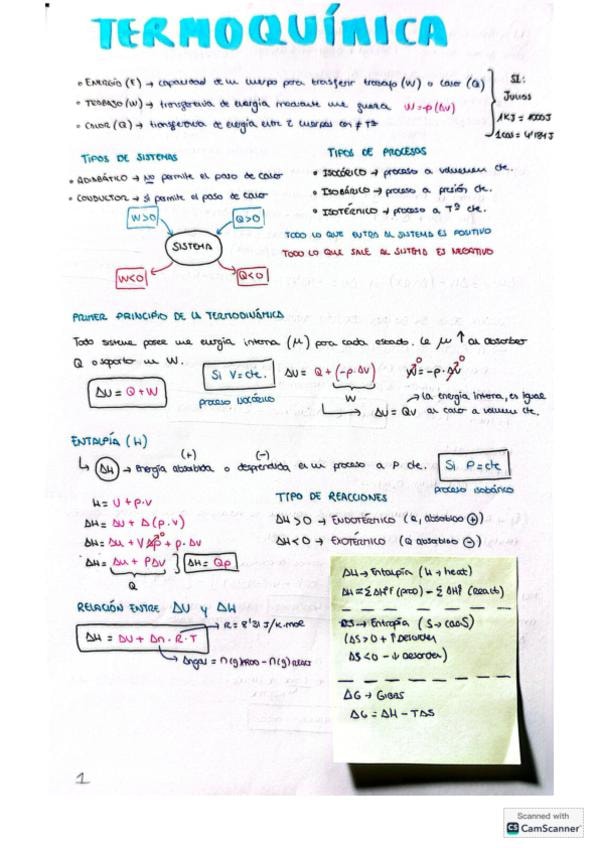 TERMOQUÍMICA
• ENERGÍA (E) → capacidad de un cuerpo para transferir trabajo (W) o calor (Q)
• TRABAJO (W) → transferencia de energía mediante una fuerza W=-p(ΔV)
• CALOR (Q) → transferencia de energía entre 2 cuerpos con ≠ Tª
SI:
Julios
1KJ = 1000J
1cal = 4'184J
TIPOS DE SISTEMAS
• ADIABÁTICO → NO permite el paso de calor
• CONDUCTOR → SÍ permite el paso de calor
TIPOS DE PROCESOS
• ISOCÓRICO → proceso a volumen cte.
• ISOBÁRICO → proceso a presión cte.
• ISOTÉRMICO → proceso a Tª cte.
W>0
Q>0
SISTEMA
W<0
Q<0
TODO LO QUE ENTRA AL SISTEMA ES POSITIVO
TODO LO QUE SALE AL SISTEMA ES NEGATIVO
PRIMER PRINCIPIO DE LA TERMODINÁMICA
Todo sistema posee una energía interna (μ) para cada estado. La μ ↑ al absorber
Q o soportar un W.
ΔU = Q + W
Si V= cte.
proceso isocórico
ΔU = Q + (-p·ΔV)
W
→ ΔU = Qv
W = -p·ΔV 0
→ La energía interna, es igual
al calor a volumen cte.
ENTALPÍA (H)
(+) (-)
↳ ΔH → Energía absorbida o desprendida en un proceso a P cte.
Si P=cte
proceso isobárico
H = U + p·V
ΔH = ΔU + Δ(p·V)
ΔH = Δu + VΔp 0 + p·ΔV
ΔH = Δu + PΔV } ΔH = Qp
Q
TIPO DE REACCIONES
ΔH > 0 → ENDOTÉRMICO (Q absorbido +)
ΔH < 0 → EXOTÉRMICO (Q absorbido -)
RELACIÓN ENTRE ΔU y ΔH
ΔH = ΔU + Δn·R·T
→ R = 8'31 J/K·mol
→ Δngas = n(g)PROD - n(g)REACT
ΔH → Entalpía (H → heat)
ΔH = Σ ΔHºf (prod) - Σ ΔHºf (React)
ΔS → Entropía (S → caoS)
(ΔS > 0 + ↑ Desorden
ΔS < 0 - ↓ desorden)
ΔG → GIBBS
ΔG = ΔH - TΔS
1
Scanned with
CS CamScanner